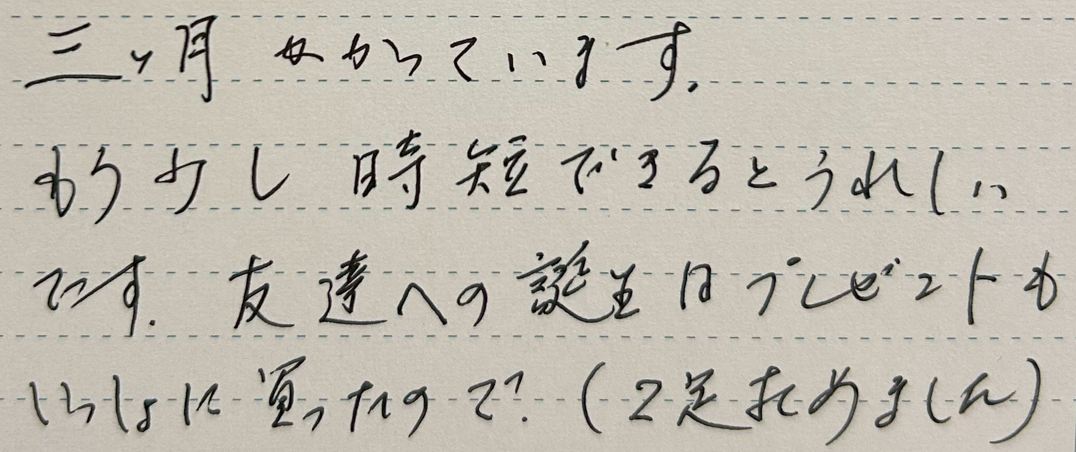 三ヶ月 かかっています。
もう少し 時短できるとうれしい
です。友達への誕生日プレゼントも
いっしょに買ったので。(2足 ました)